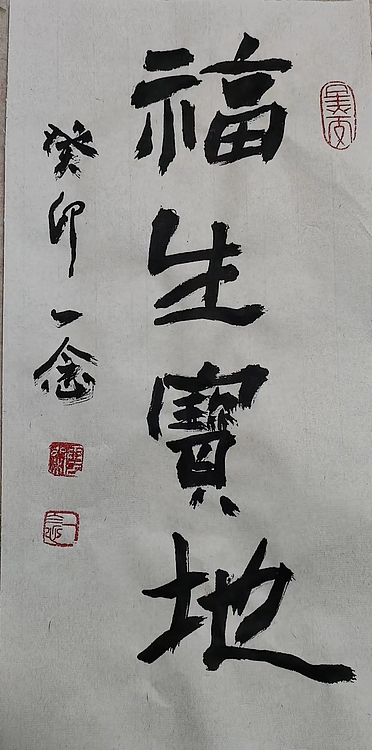 福生寳地
癸卯一念